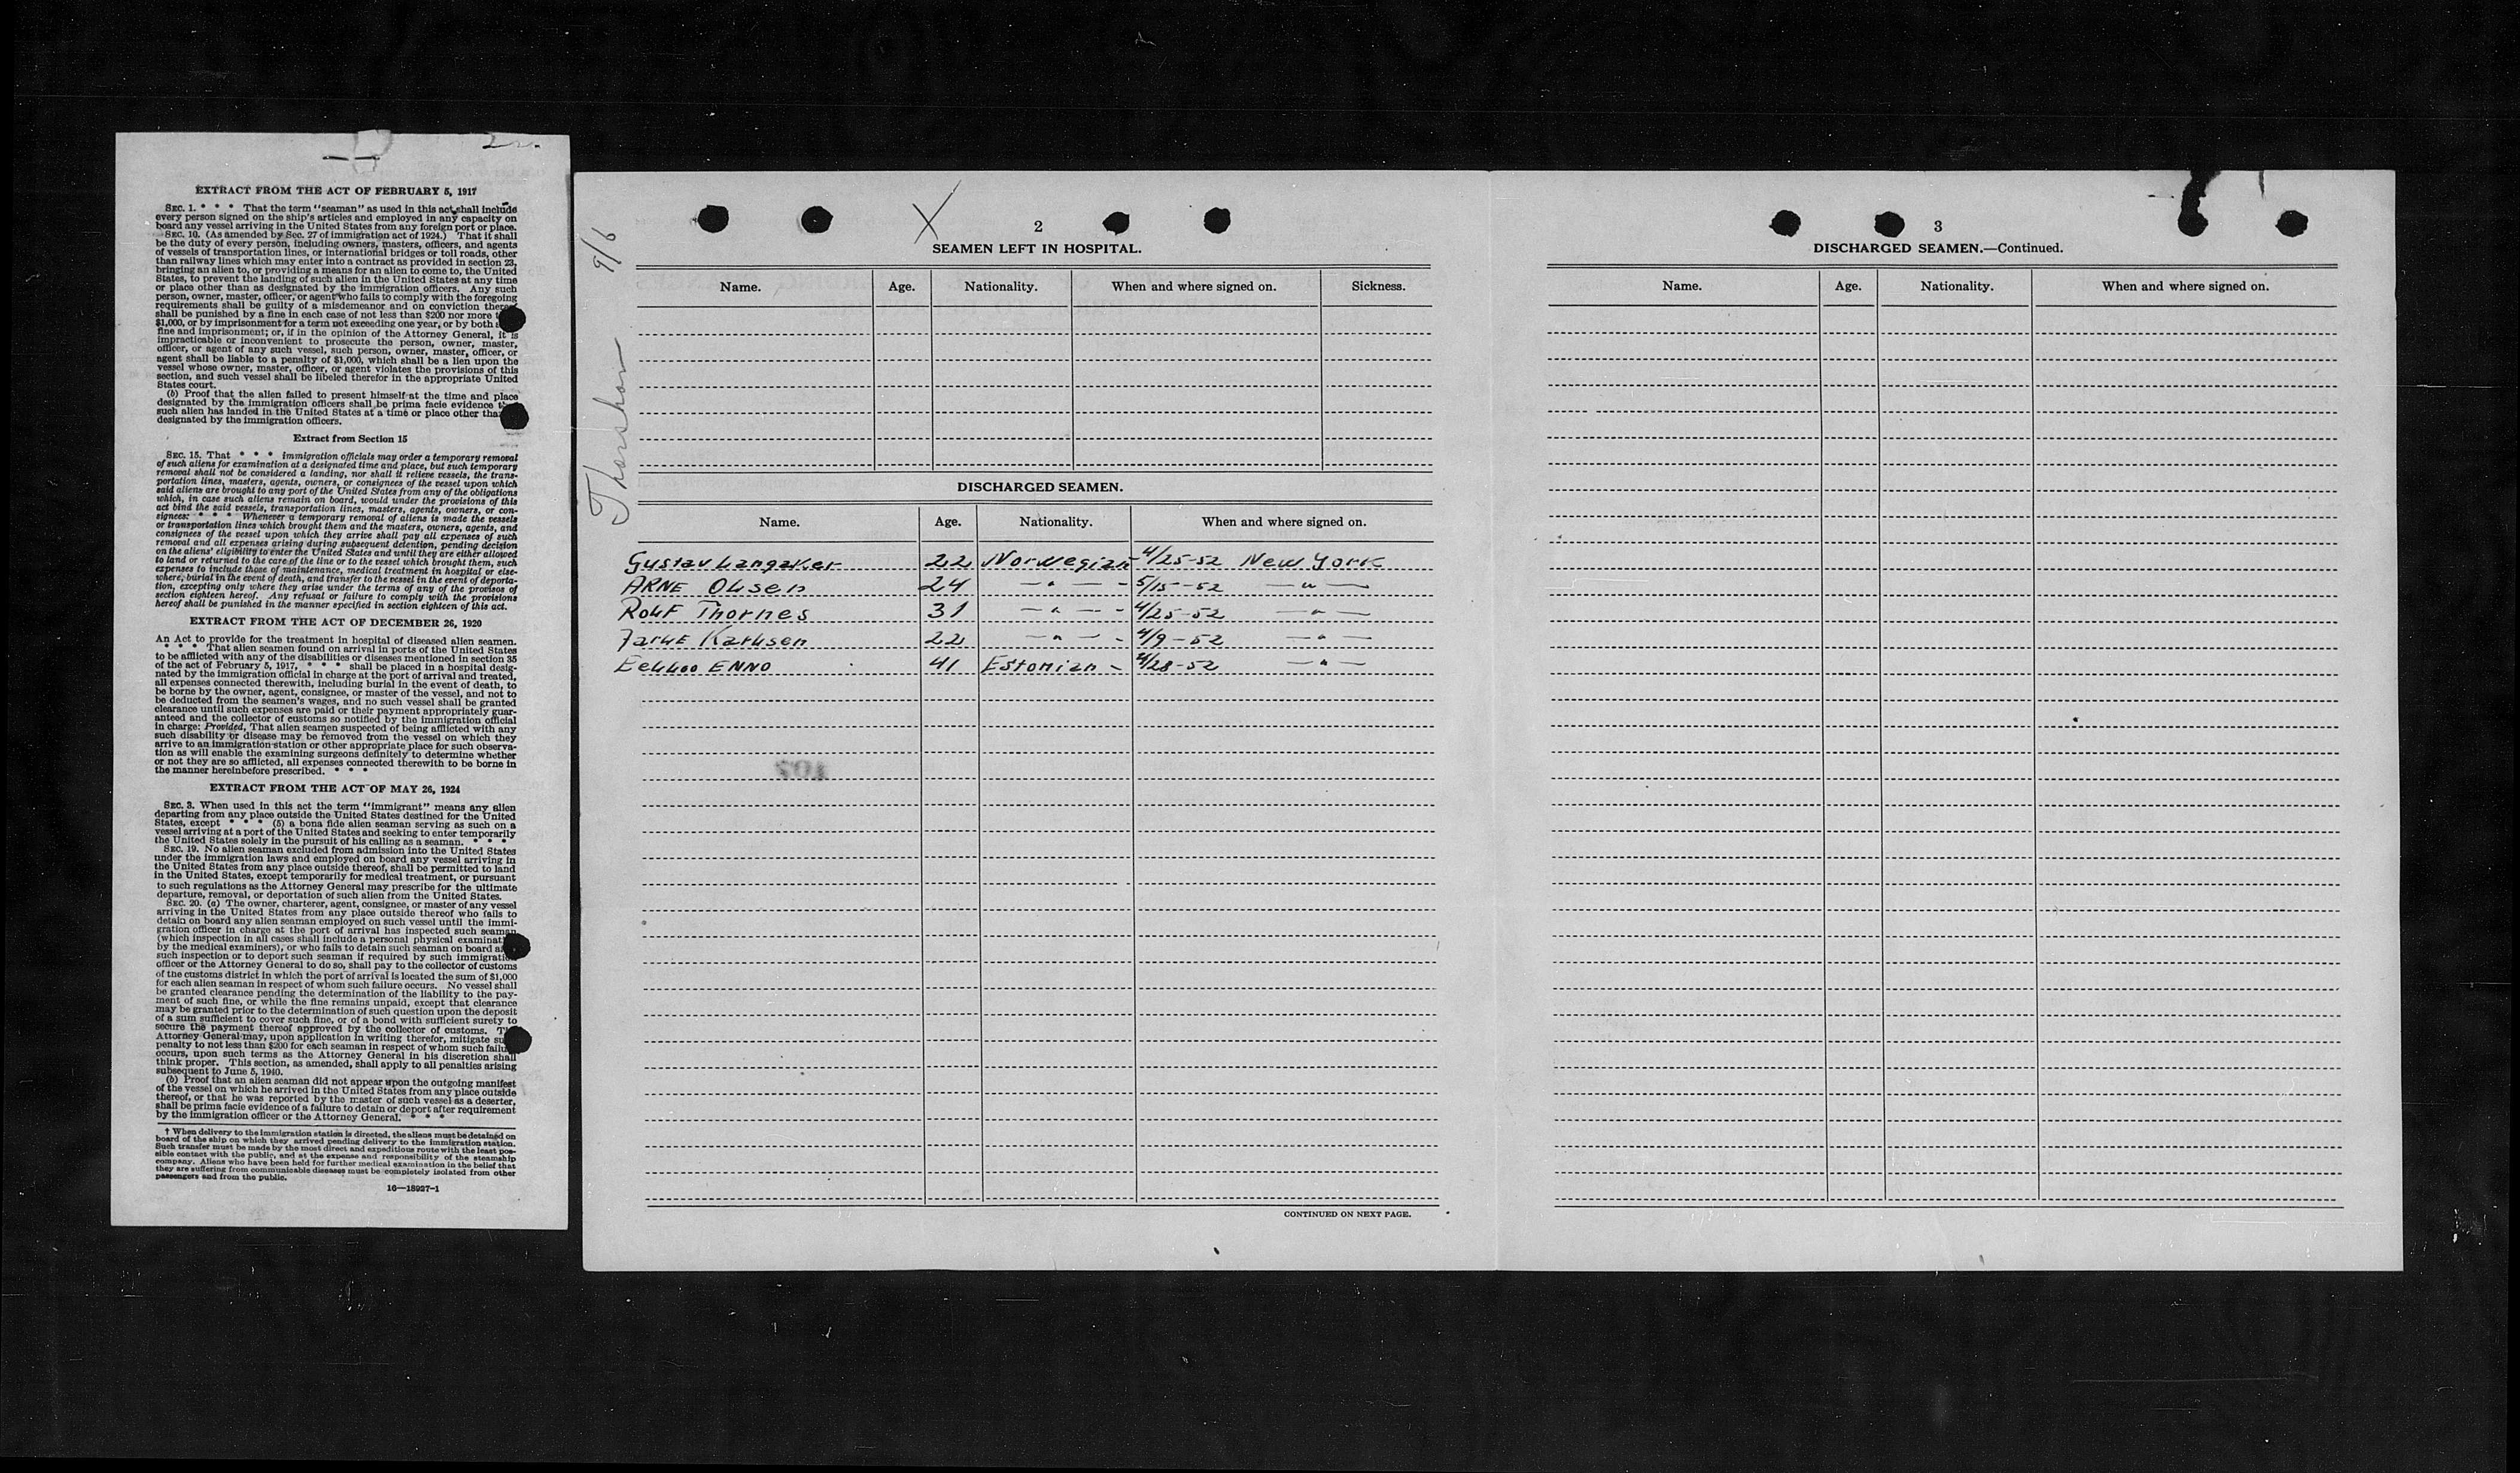 EXTRACT FROM THE ACT OF FEBRUARY 5, 1917
SEC. 1. * * * That the term "seaman" as used in this act shall include
every person signed on the ship's articles and employed in any capacity on
board any vessel arriving in the United States from any foreign port or place.
SEC. 10. (As amended by Sec. 27 of immigration act of 1924.) That it shall
be the duty of every person, including owners, masters, officers, and agents
of vessels of transportation lines, or international bridges or toll roads, other
than railway lines which may enter into a contract as provided in section 23,
bringing an alien to, or providing a means for an alien to come to, the United
States, to prevent the landing of such alien in the United States at any time
or place other than as designated by the immigration officers. Any such
person, owner, master, officer, or agent who fails to comply with the foregoing
requirements shall be guilty of a misdemeanor and on conviction thereof
shall be punished by a fine in each case of not less than $200 nor more
$1,000, or by imprisonment for a term not exceeding one year, or by both
fine and imprisonment; or, if in the opinion of the Attorney General, it is
impracticable or inconvenient to prosecute the person, owner, master,
officer, or agent of any such vessel, such person, owner, master, officer, or
agent shall be liable to a penalty of $1,000, which shall be a lien upon the
vessel whose owner, master, officer, or agent violates the provisions of this
section, and such vessel shall be libeled therefor in the appropriate United
States court.
(b) Proof that the alien failed to present himself at the time and place
designated by the immigration officers shall be prima facie evidence
such alien has landed in the United States at a time or place other than
designated by the immigration officers.
Extract from Section 15
SEC. 15. That * * * immigration officials may order a temporary removal
of such aliens for examination at a designated time and place, but such temporary
removal shall not be considered a landing, nor shall it relieve vessels, the trans-
portation lines, masters, agents, owners, or consignees of the vessel upon which
said aliens are brought to any port of the United States from any of the obligations
which, in case such aliens remain on board, would under the provisions of this
act bind the said vessels, transportation lines, masters, agents, owners, or con-
signees: * * * Whenever a temporary removal of aliens is made the vessels
or transportation lines which brought them and the masters, owners, agents, and
consignees of the vessel upon which they arrive shall pay all expenses of such
removal and all expenses arising during subsequent detention, pending decision
on the aliens' eligibility to enter the United States and until they are either allowed
to land or returned to the care of the line or to the vessel which brought them, such
expenses to include those of maintenance, medical treatment in hospital or else-
where, burial in the event of death, and transfer to the vessel in the event of deporta-
tion, excepting only where they arise under the terms of any of the provisos of
section eighteen hereof. Any refusal or failure to comply with the provisions
hereof shall be punished in the manner specified in section eighteen of this act.
EXTRACT FROM THE ACT OF DECEMBER 26, 1920
An Act to provide for the treatment in hospital of diseased alien seamen.
* * * That alien seamen found on arrival in ports of the United States
to be afflicted with any of the disabilities or diseases mentioned in section 35
of the act of February 5, 1917, * * * shall be placed in a hospital desig-
nated by the immigration official in charge at the port of arrival and treated,
all expenses connected therewith, including burial in the event of death, to
be borne by the owner, agent, consignee, or master of the vessel, and not to
be deducted from the seamen's wages, and no such vessel shall be granted
clearance until such expenses are paid or their payment appropriately guar-
anteed and the collector of customs so notified by the immigration official
in charge: Provided, That alien seamen suspected of being afflicted with any
such disability or disease may be removed from the vessel on which they
arrive to an immigration station or other appropriate place for such observa-
tion as will enable the examining surgeons definitely to determine whether
or not they are so afflicted, all expenses connected therewith to be borne in
the manner hereinbefore prescribed. * * *
EXTRACT FROM THE ACT OF MAY 26, 1924
SEC. 3. When used in this act the term "immigrant" means any alien
departing from any place outside the United States destined for the United
States, except * * * (5) a bona fide alien seaman serving as such on a
vessel arriving at a port of the United States and seeking to enter temporarily
the United States solely in the pursuit of his calling as a seaman. * * *
SEC. 19. No alien seaman excluded from admission into the United States
under the immigration laws and employed on board any vessel arriving in
the United States from any place outside thereof, shall be permitted to land
in the United States, except temporarily for medical treatment, or pursuant
to such regulations as the Attorney General may prescribe for the ultimate
departure, removal, or deportation of such alien from the United States.
SEC. 20. (a) The owner, charterer, agent, consignee, or master of any vessel
arriving in the United States from any place outside thereof who fails to
detain on board any alien seaman employed on such vessel until the immi-
gration officer in charge at the port of arrival has inspected such seaman
(which inspection in all cases shall include a personal physical examinat
by the medical examiners), or who fails to detain such seaman on board a
such inspection or to deport such seaman if required by such immigratio
officer or the Attorney General to do so, shall pay to the collector of customs
of the customs district in which the port of arrival is located the sum of $1,000
for each alien seaman in respect of whom such failure occurs. No vessel shall
be granted clearance pending the determination of the liability to the pay-
ment of such fine, or while the fine remains unpaid, except that clearance
may be granted prior to the determination of such question upon the deposit
of a sum sufficient to cover such fine, or of a bond with sufficient surety to
secure the payment thereof approved by the collector of customs. Th
Attorney General may, upon application in writing therefor, mitigate su
penalty to not less than $200 for each seaman in respect of whom such failu
occurs, upon such terms as the Attorney General in his discretion shall
think proper. This section, as amended, shall apply to all penalties arising
subsequent to June 5, 1940.
(b) Proof that an alien seaman did not appear upon the outgoing manifest
of the vessel on which he arrived in the United States from any place outside
thereof, or that he was reported by the master of such vessel as a deserter,
shall be prima facie evidence of a failure to detain or deport after requirement
by the immigration officer or the Attorney General. * * *
† When delivery to the immigration station is directed, the aliens must be detained on
board of the ship on which they arrived pending delivery to the immigration station.
Such transfer must be made by the most direct and expeditious route with the least pos-
sible contact with the public, and at the expense and responsibility of the steamship
company. Aliens who have been held for further medical examination in the belief that
they are suffering from communicable diseases must be completely isolated from other
passengers and from the public.
16—18927-1
9/6
Thorshov
X
2
SEAMEN LEFT IN HOSPITAL.
Name. Age. Nationality. When and where signed on. Sickness.
DISCHARGED SEAMEN.
Name. Age. Nationality. When and where signed on.
Gustav Langaker 22 Norwegian - 4/25-52 New York
ARNE OLsen 24 — " — - 5/15-52 — " —
ROLF Thornes 31 — " — - 4/25-52 — " —
JarLE KarLsen 22 — " — - 4/9-52 — " —
EeLLoo ENNO 41 Estonian - 4/28-52 — " —
107
CONTINUED ON NEXT PAGE.
3
DISCHARGED SEAMEN.—Continued.
Name. Age. Nationality. When and where signed on.